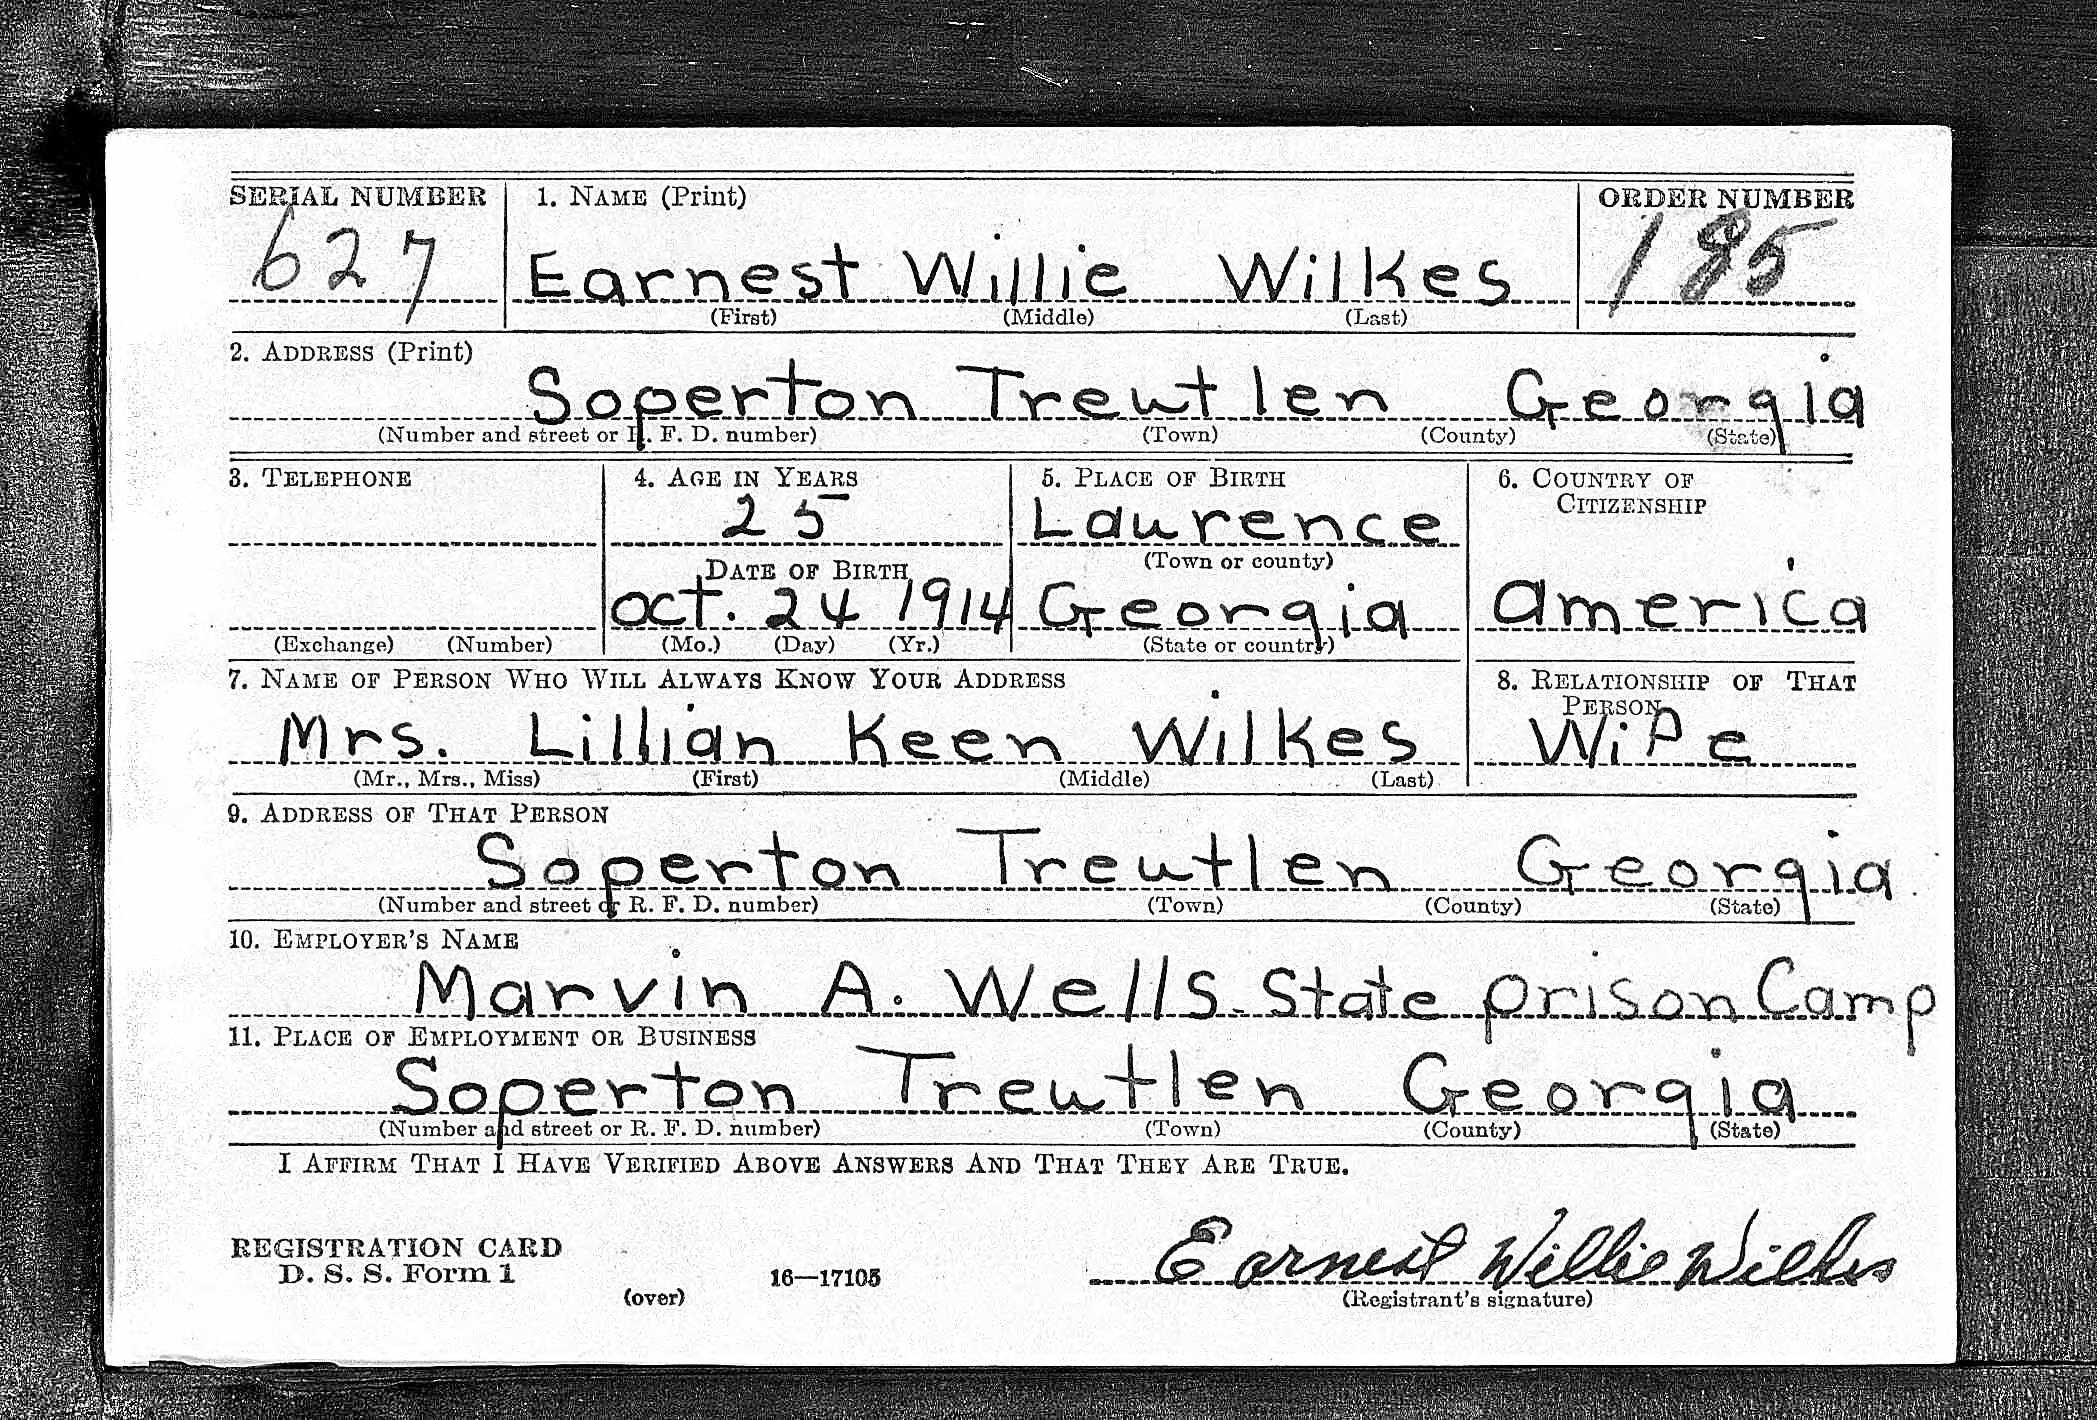 SERIAL NUMBER 1. NAME (Print) ORDER NUMBER
627 Earnest Willie Wilkes 185
(First) (Middle) (Last)
2. ADDRESS (Print)
Soperton Treutlen Georgia
(Number and street or R. F. D. number) (Town) (County) (State)
3. TELEPHONE 4. AGE IN YEARS 5. PLACE OF BIRTH 6. COUNTRY OF
CITIZENSHIP
25 Laurence
(Town or county)
DATE OF BIRTH
Oct. 24 1914 Georgia America
(Exchange) (Number) (Mo.) (Day) (Yr.) (State or country)
7. NAME OF PERSON WHO WILL ALWAYS KNOW YOUR ADDRESS 8. RELATIONSHIP OF THAT
PERSON
Mrs. Lillian Keen Wilkes Wife
(Mr., Mrs., Miss) (First) (Middle) (Last)
9. ADDRESS OF THAT PERSON
Soperton Treutlen Georgia
(Number and street or R. F. D. number) (Town) (County) (State)
10. EMPLOYER'S NAME
Marvin A. Wells. State prison Camp
11. PLACE OF EMPLOYMENT OR BUSINESS
Soperton Treutlen Georgia
(Number and street or R. F. D. number) (Town) (County) (State)
I AFFIRM THAT I HAVE VERIFIED ABOVE ANSWERS AND THAT THEY ARE TRUE.
REGISTRATION CARD
D. S. S. Form 1 16—17105 Earnest Willie Wilkes
(over) (Registrant's signature)